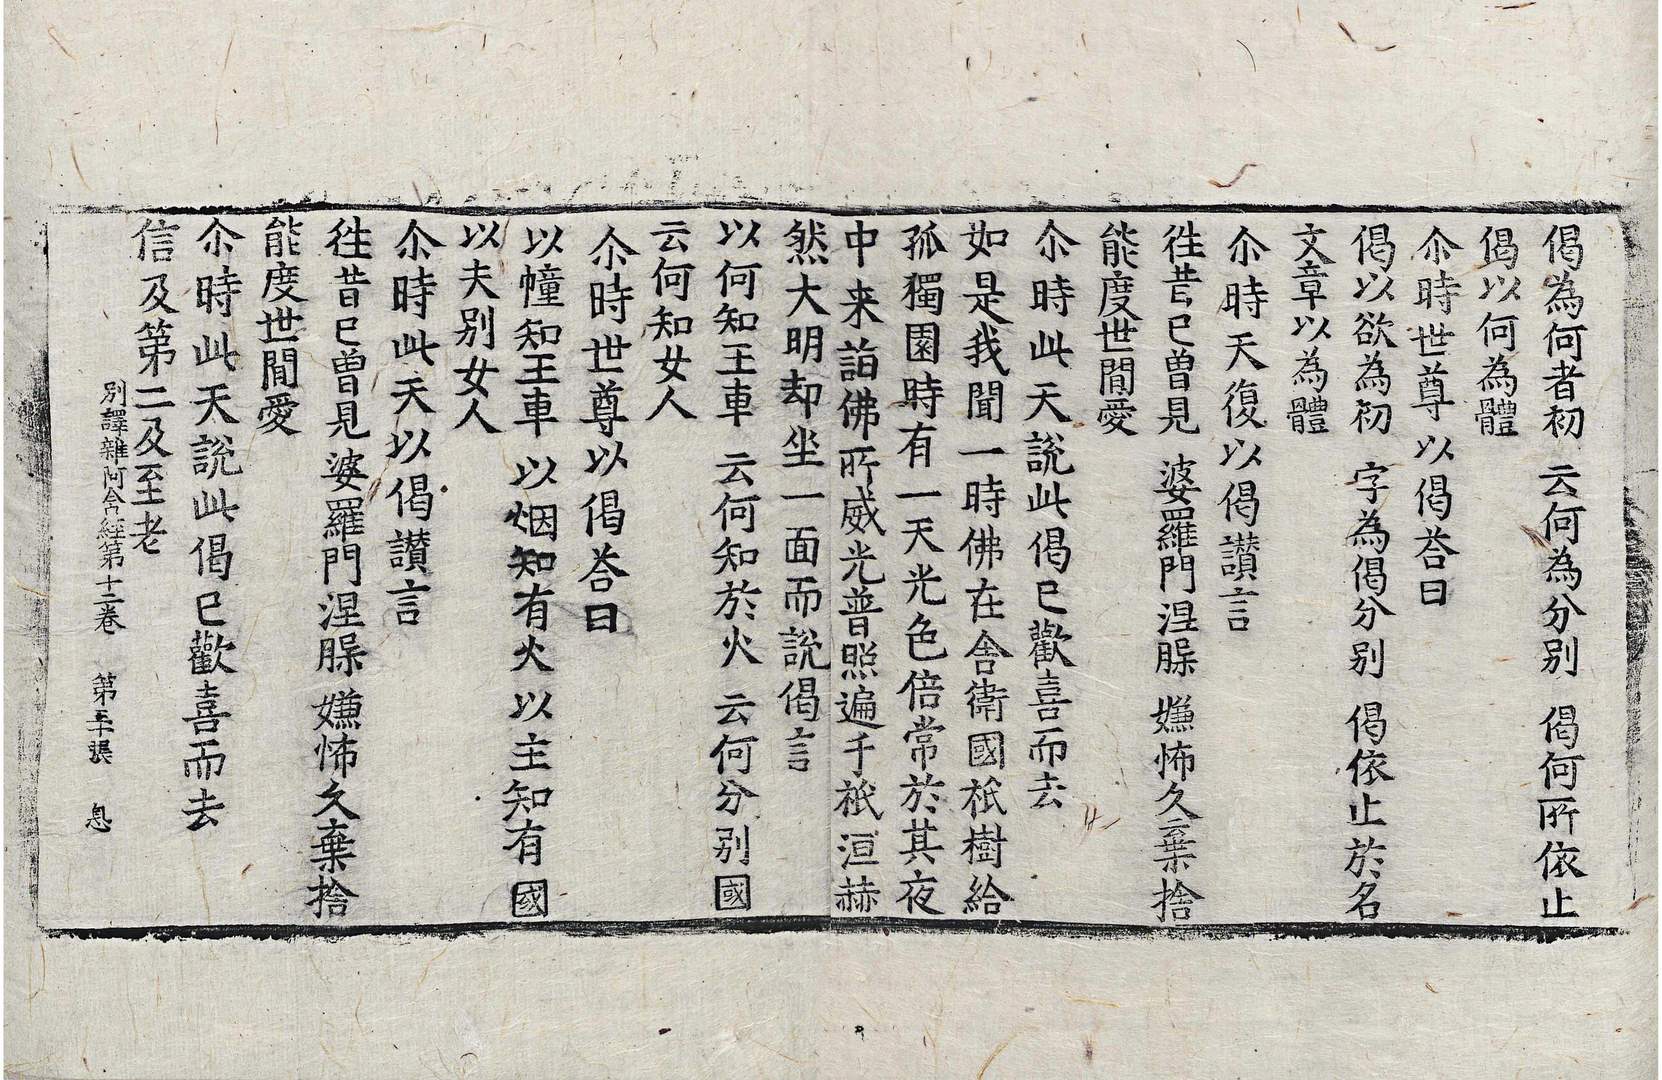 偈為何者初 云何為分別 偈何所依止
偈以何為體
尒時世尊以偈荅曰
偈以欲為初 字為偈分別 偈依止於名
文章以為體
尒時天復以偈讃言
徃昔已曾見 婆羅門涅槃 嫌怖久棄捨
能度世閒愛
尒時此天說此偈已歡喜而去
如是我聞一時佛在舍衛國祇樹給
孤獨園時有一天光色倍常於其夜
中来詣佛所威光普照遍于祇洹赫
然大明却坐一面而說偈言
以何知王車 云何知於火 云何分別國
云何知女人
尒時世尊以偈荅曰
以幢知王車 以烟知有火 以主知有國
以夫別女人
尒時此天以偈讃言
徃昔已曾見 婆羅門涅槃 嫌怖久棄捨
能度世閒愛
尒時此天說此偈已歡喜而去
信及第二及至老
別譯雜阿含經第十二卷 第 張 息